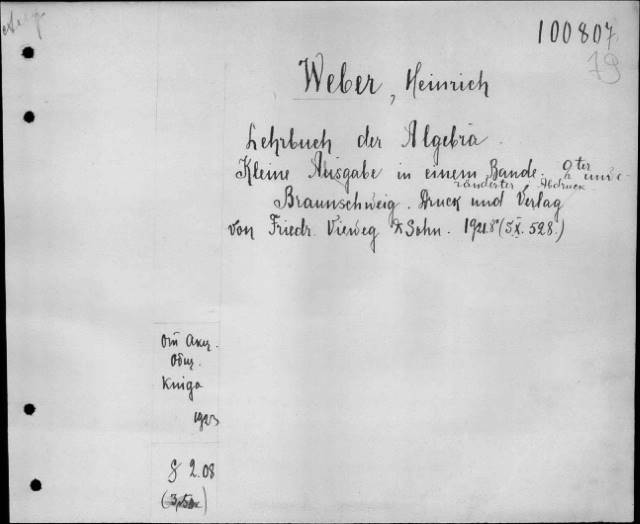 100807
79
Weber, Heinrich
Lehrbuch der Algebra.
Kleine Ausgabe in einem Bande. 2ter unve-
ränderter Abdruck
Braunschweig. Druck und Verlag
von Friedr. Vieweg & Sohn. 1921. 8° (S X. 528.)
От Акц.
Общ.
Книга
1923
8 2.08